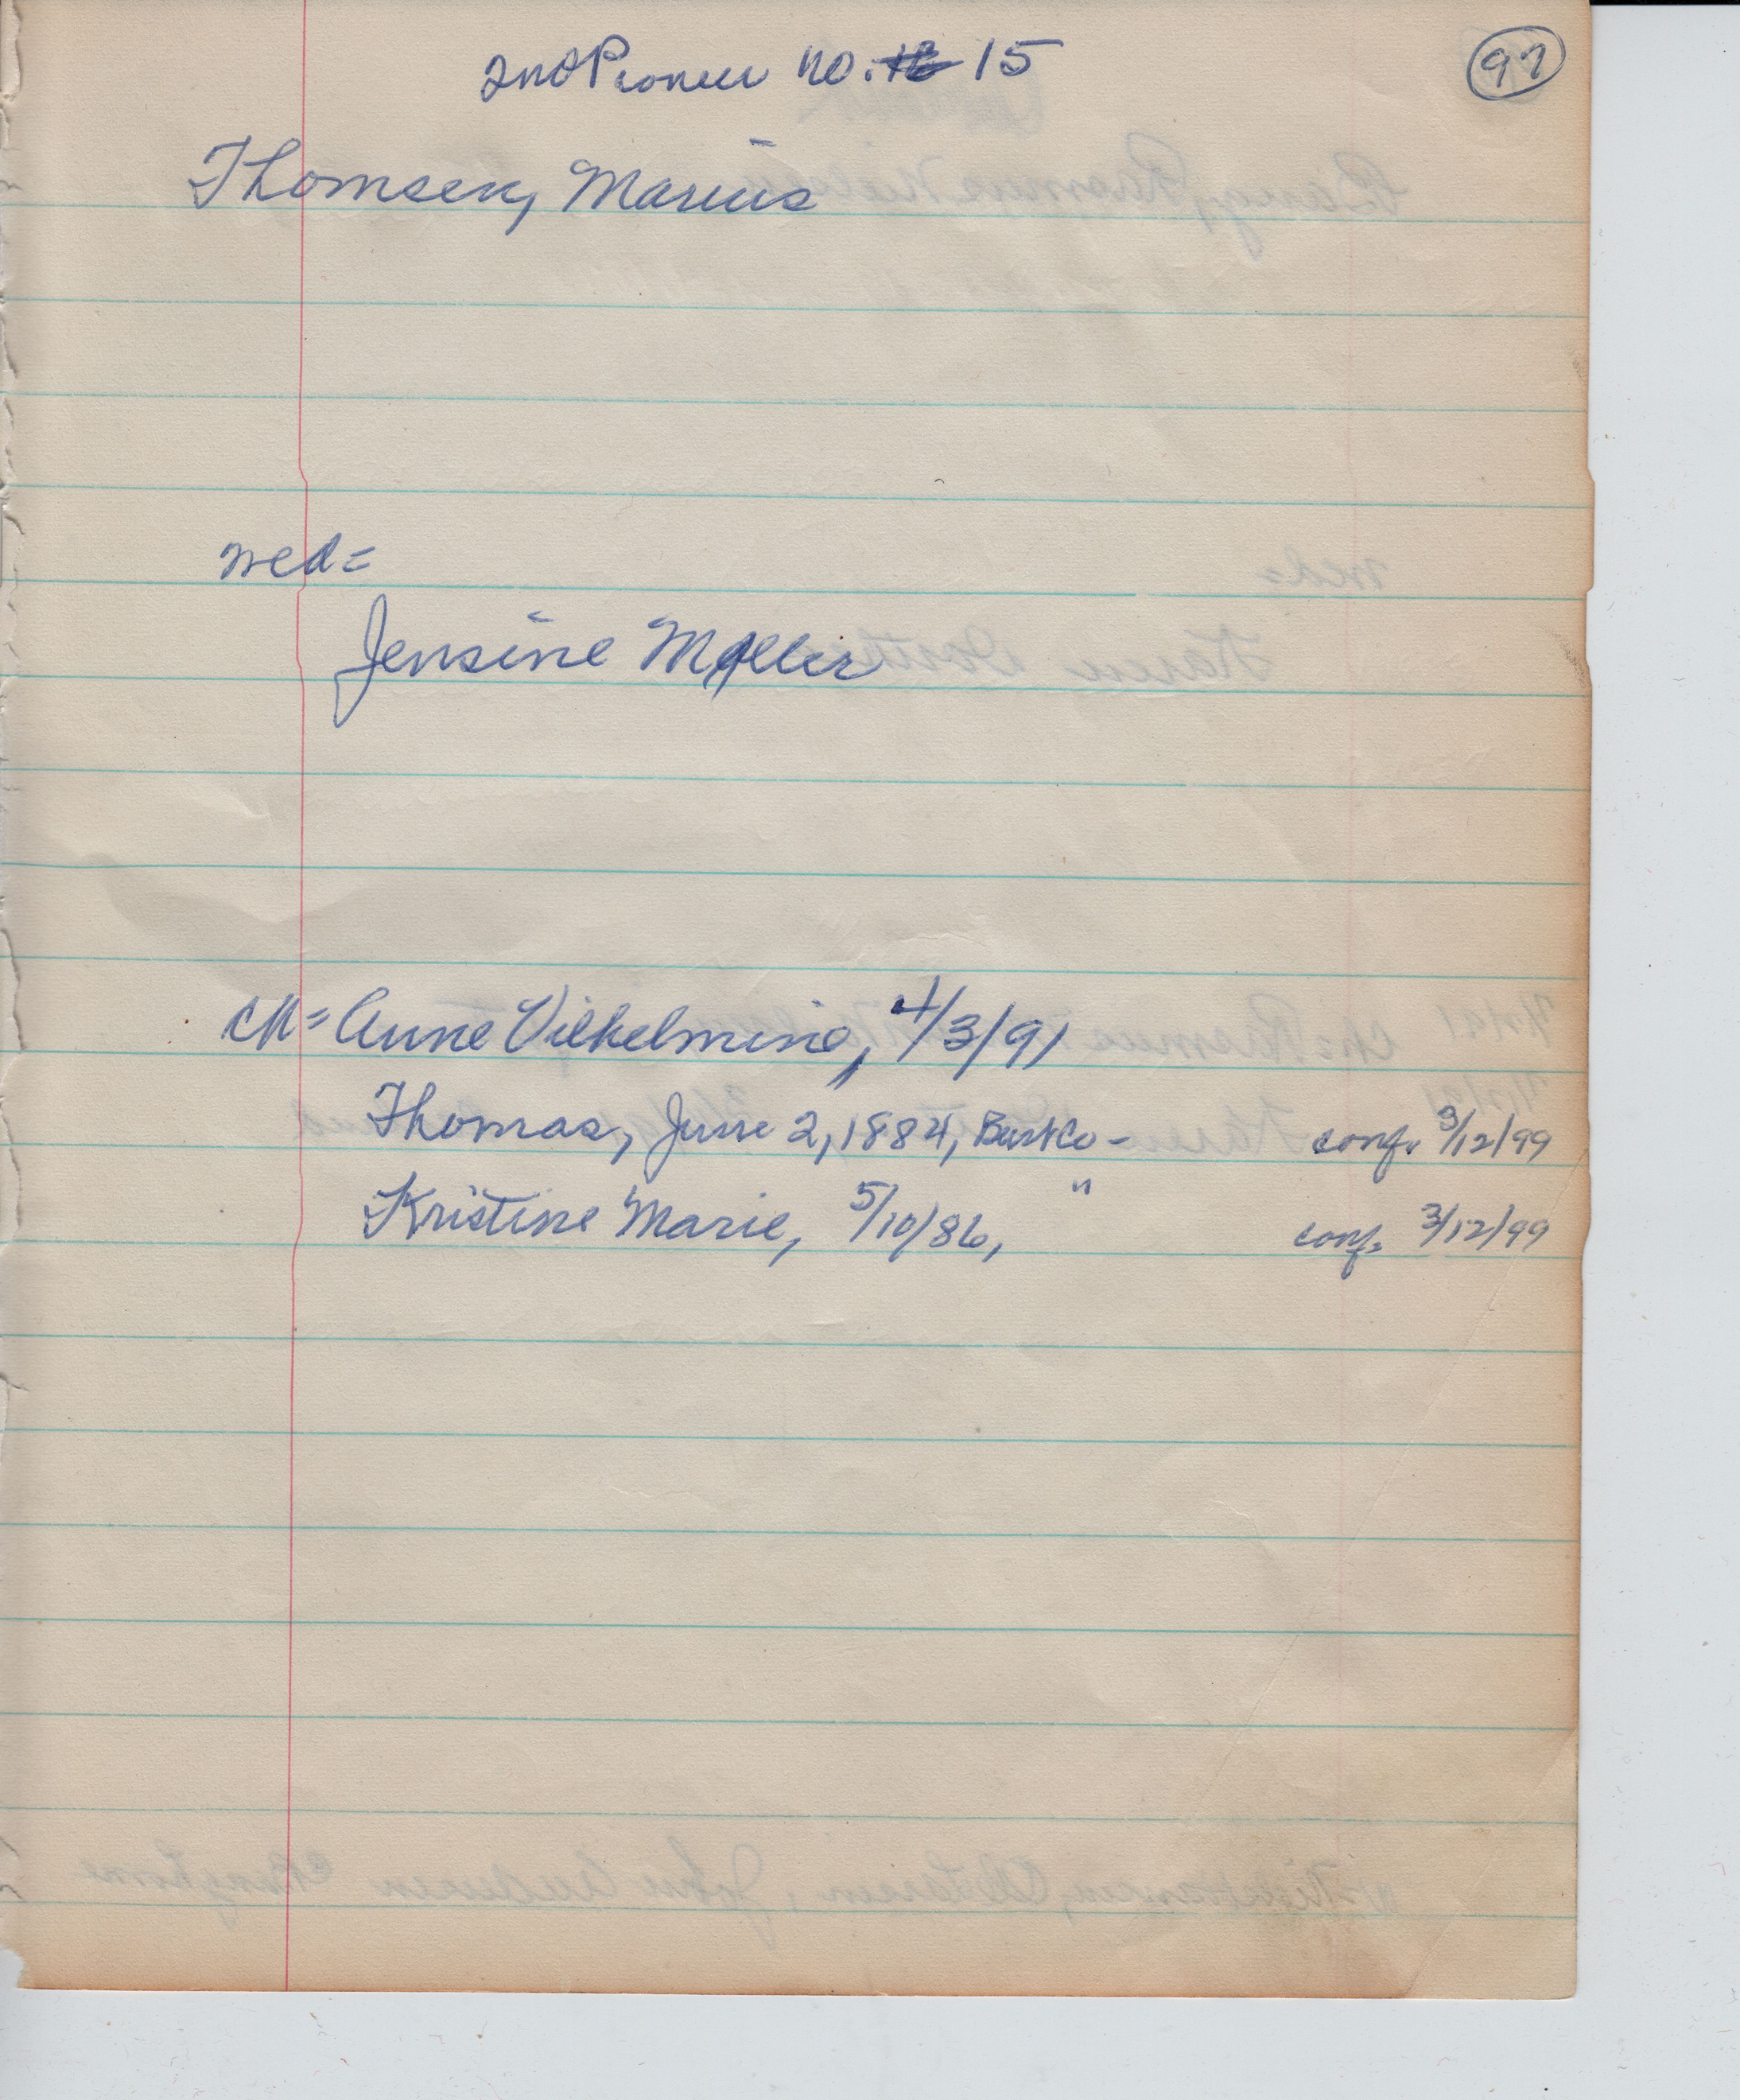 2nd Pioneer no. 15
97
Thomsen, Marius
wed=
Jensine Møller
ch= Anne Vilhelmine, 4/3/91
Thomas, June 2, 1884, Burt Co- conf. 3/12/99
Kristine Marie, 5/10/86, " conf. 3/12/99